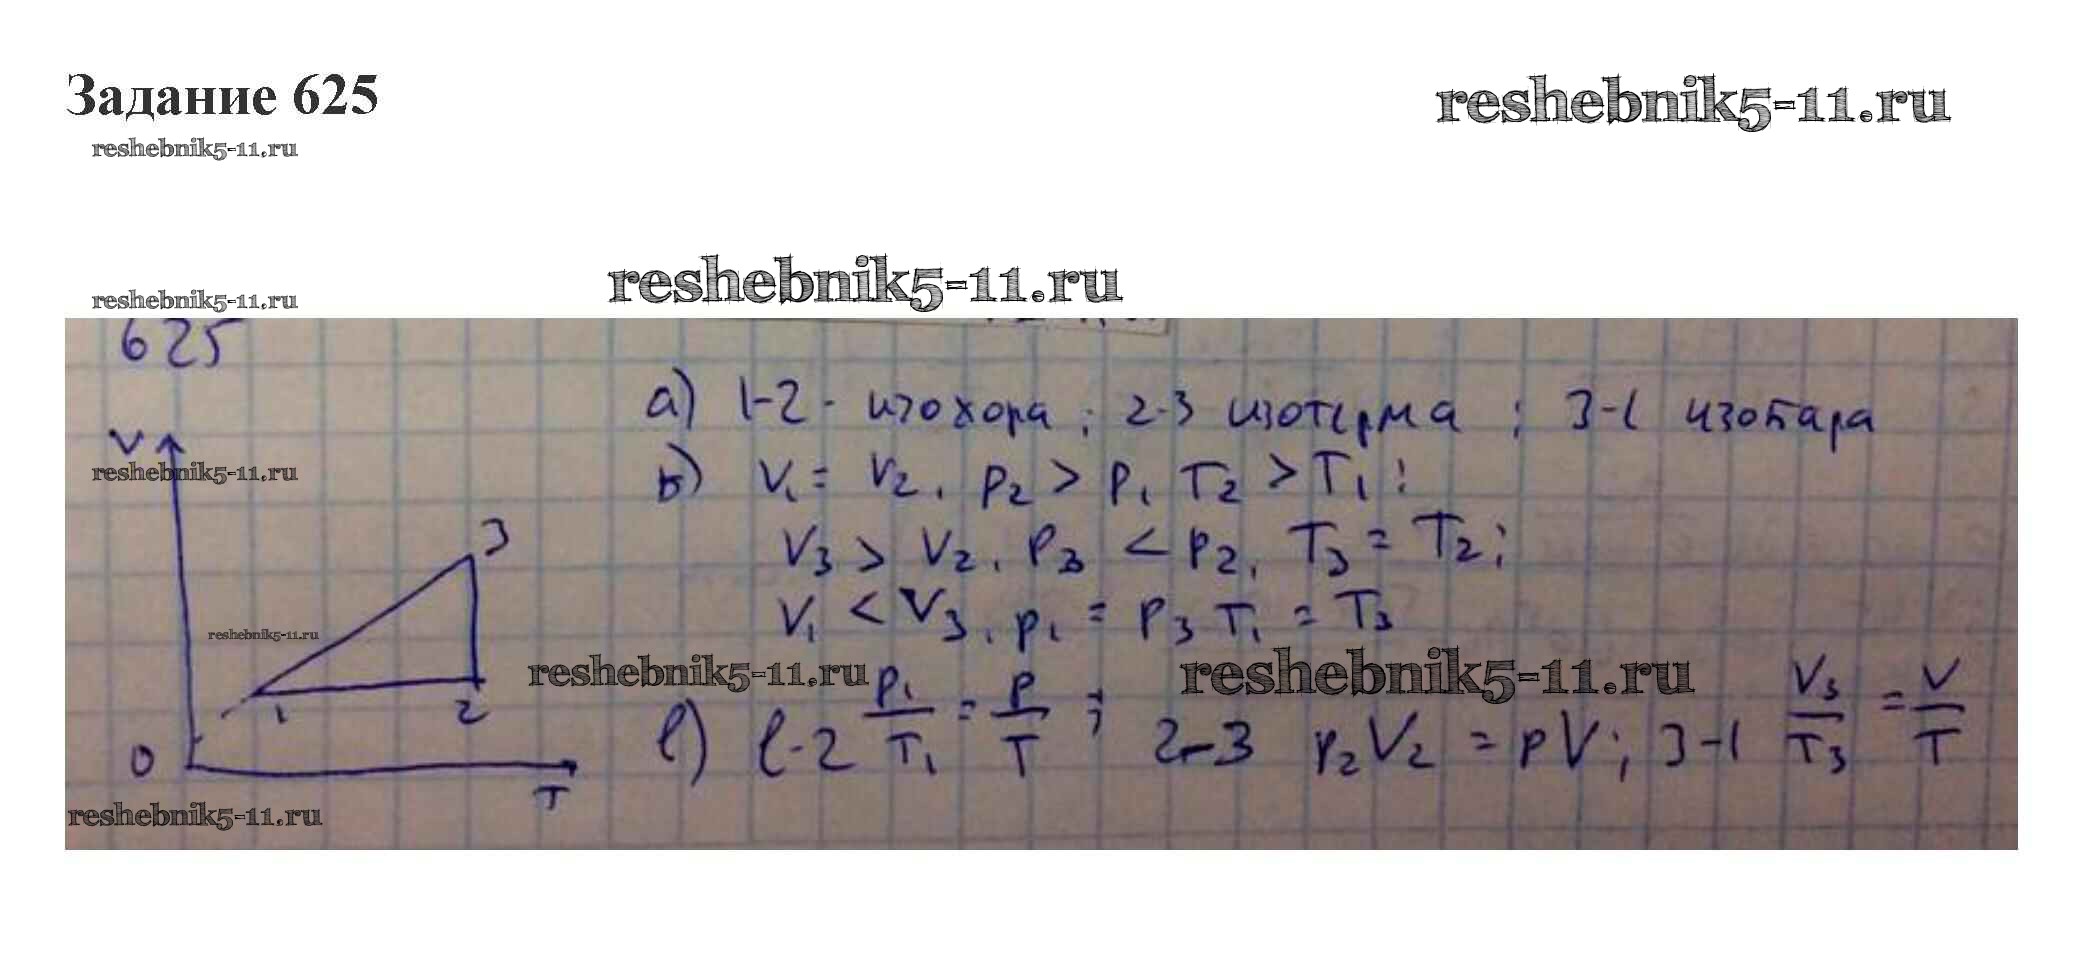 Задание 625
reshebnik5-11.ru
reshebnik5-11.ru
reshebnik5-11.ru
reshebnik5-11.ru
625
а) 1-2 - изохора ; 2-3 изотерма ; 3-1 изобара
V
reshebnik5-11.ru
б) V₁ = V₂, p₂ > p₁ T₂ > T₁ ;
3
V₃ > V₂, P₃ < P₂, T₃ = T₂;
reshebnik5-11.ru
V₁ < V₃, p₁ = p₃ T₁ = T₃
reshebnik5-11.ru
reshebnik5-11.ru
1 2
в) 1-2 p₁/T₁ = p/T ; 2-3 p₂V₂ = pV; 3-1 V₃/T₃ = V/T
0
T
reshebnik5-11.ru